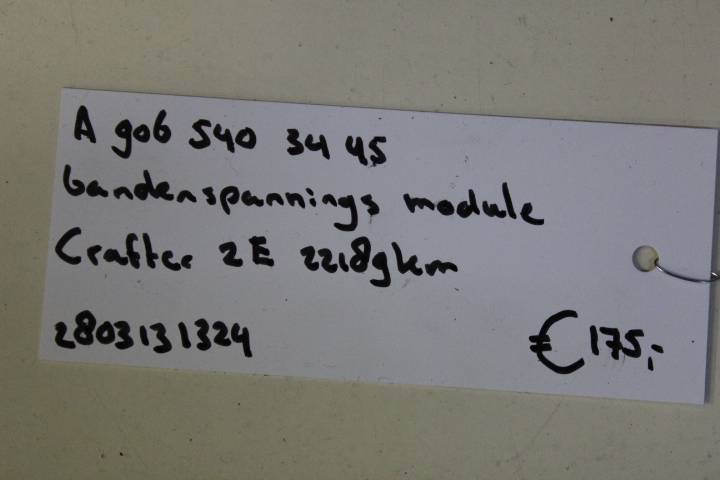 A 906 540 34 45
bandenspannings module
Crafter 2E 22189km
2803131324
€175,-